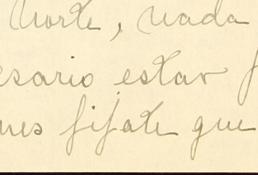 Norte, nada
esario estar f
nes fijate que